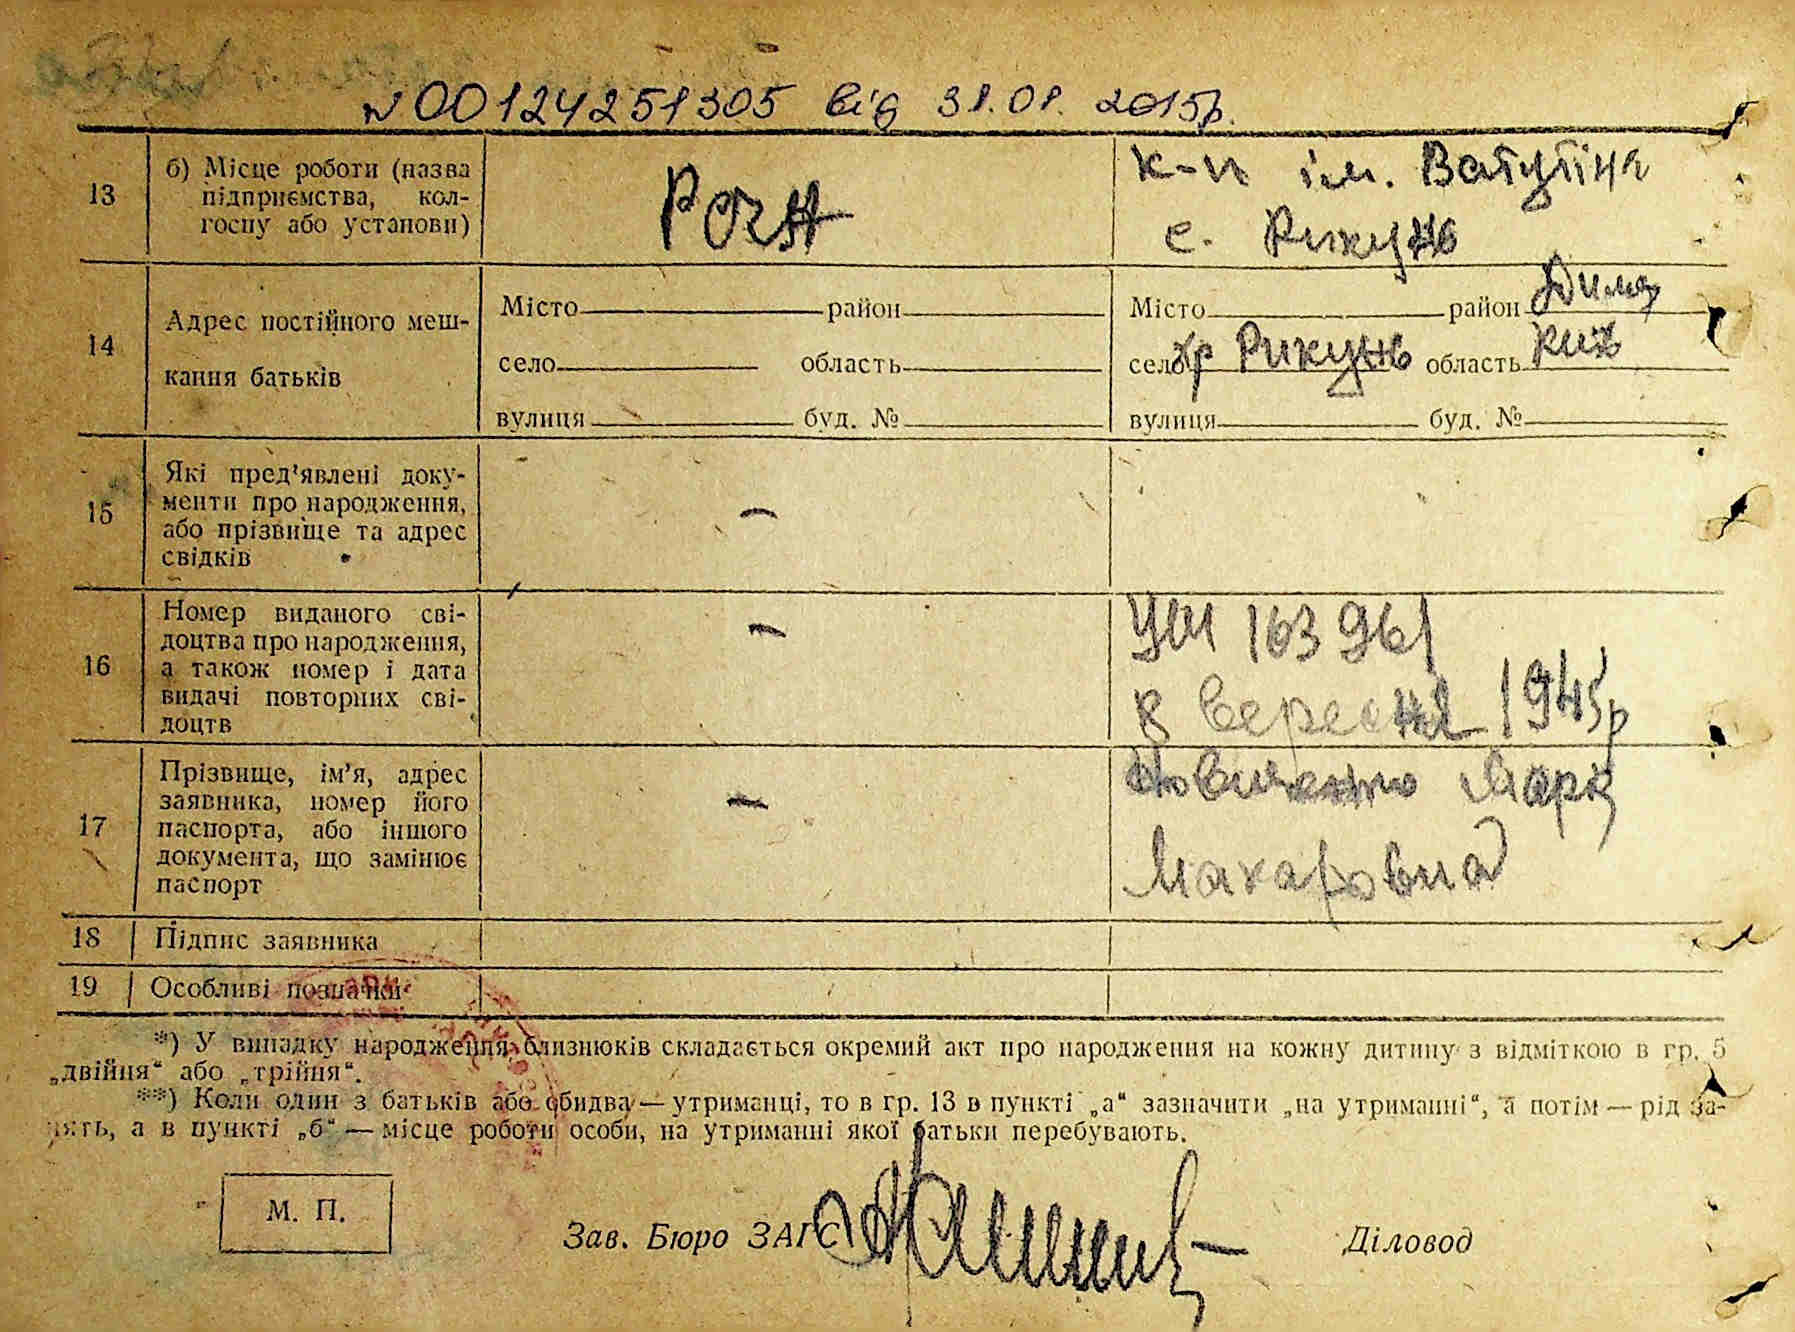 № 00124251305 від 31.01.2015р.
13 б) Місце роботи (назва підприємства, колгоспу або установи)
РСЧА
к-п ім. Ватутіна
с. Рикунь
14 Адрес постійного меш-
кання батьків
Місто район
село область
вулиця буд. №
Місто район Димер
село хр Рикунь область Київ
вулиця буд. №
15 Які пред'явлені доку-
менти про народження,
або прізвище та адрес
свідків
—
16 Номер виданого сві-
доцтва про народження,
а також номер і дата
видачі повторних сві-
доцтв
—
УШ 163961
8 вересня 1945р
17 Прізвище, ім'я, адрес
заявника, номер його
паспорта, або іншого
документа, що замінює
паспорт
—
Макаровна
18 Підпис заявника
19 Особливі позначки
*) У випадку народження близнюків складається окремий акт про народження на кожну дитину з відміткою в гр. 5
„двійня“ або „трійня“.
**) Коли один з батьків або обидва — утриманці, то в гр. 13 в пункті „а“ зазначити „на утриманні“, а потім — рід за-
нять, а в пункті „б“ — місце роботи особи, на утриманні якої батьки перебувають.
М. П.
Зав. Бюро ЗАГС
Діловод